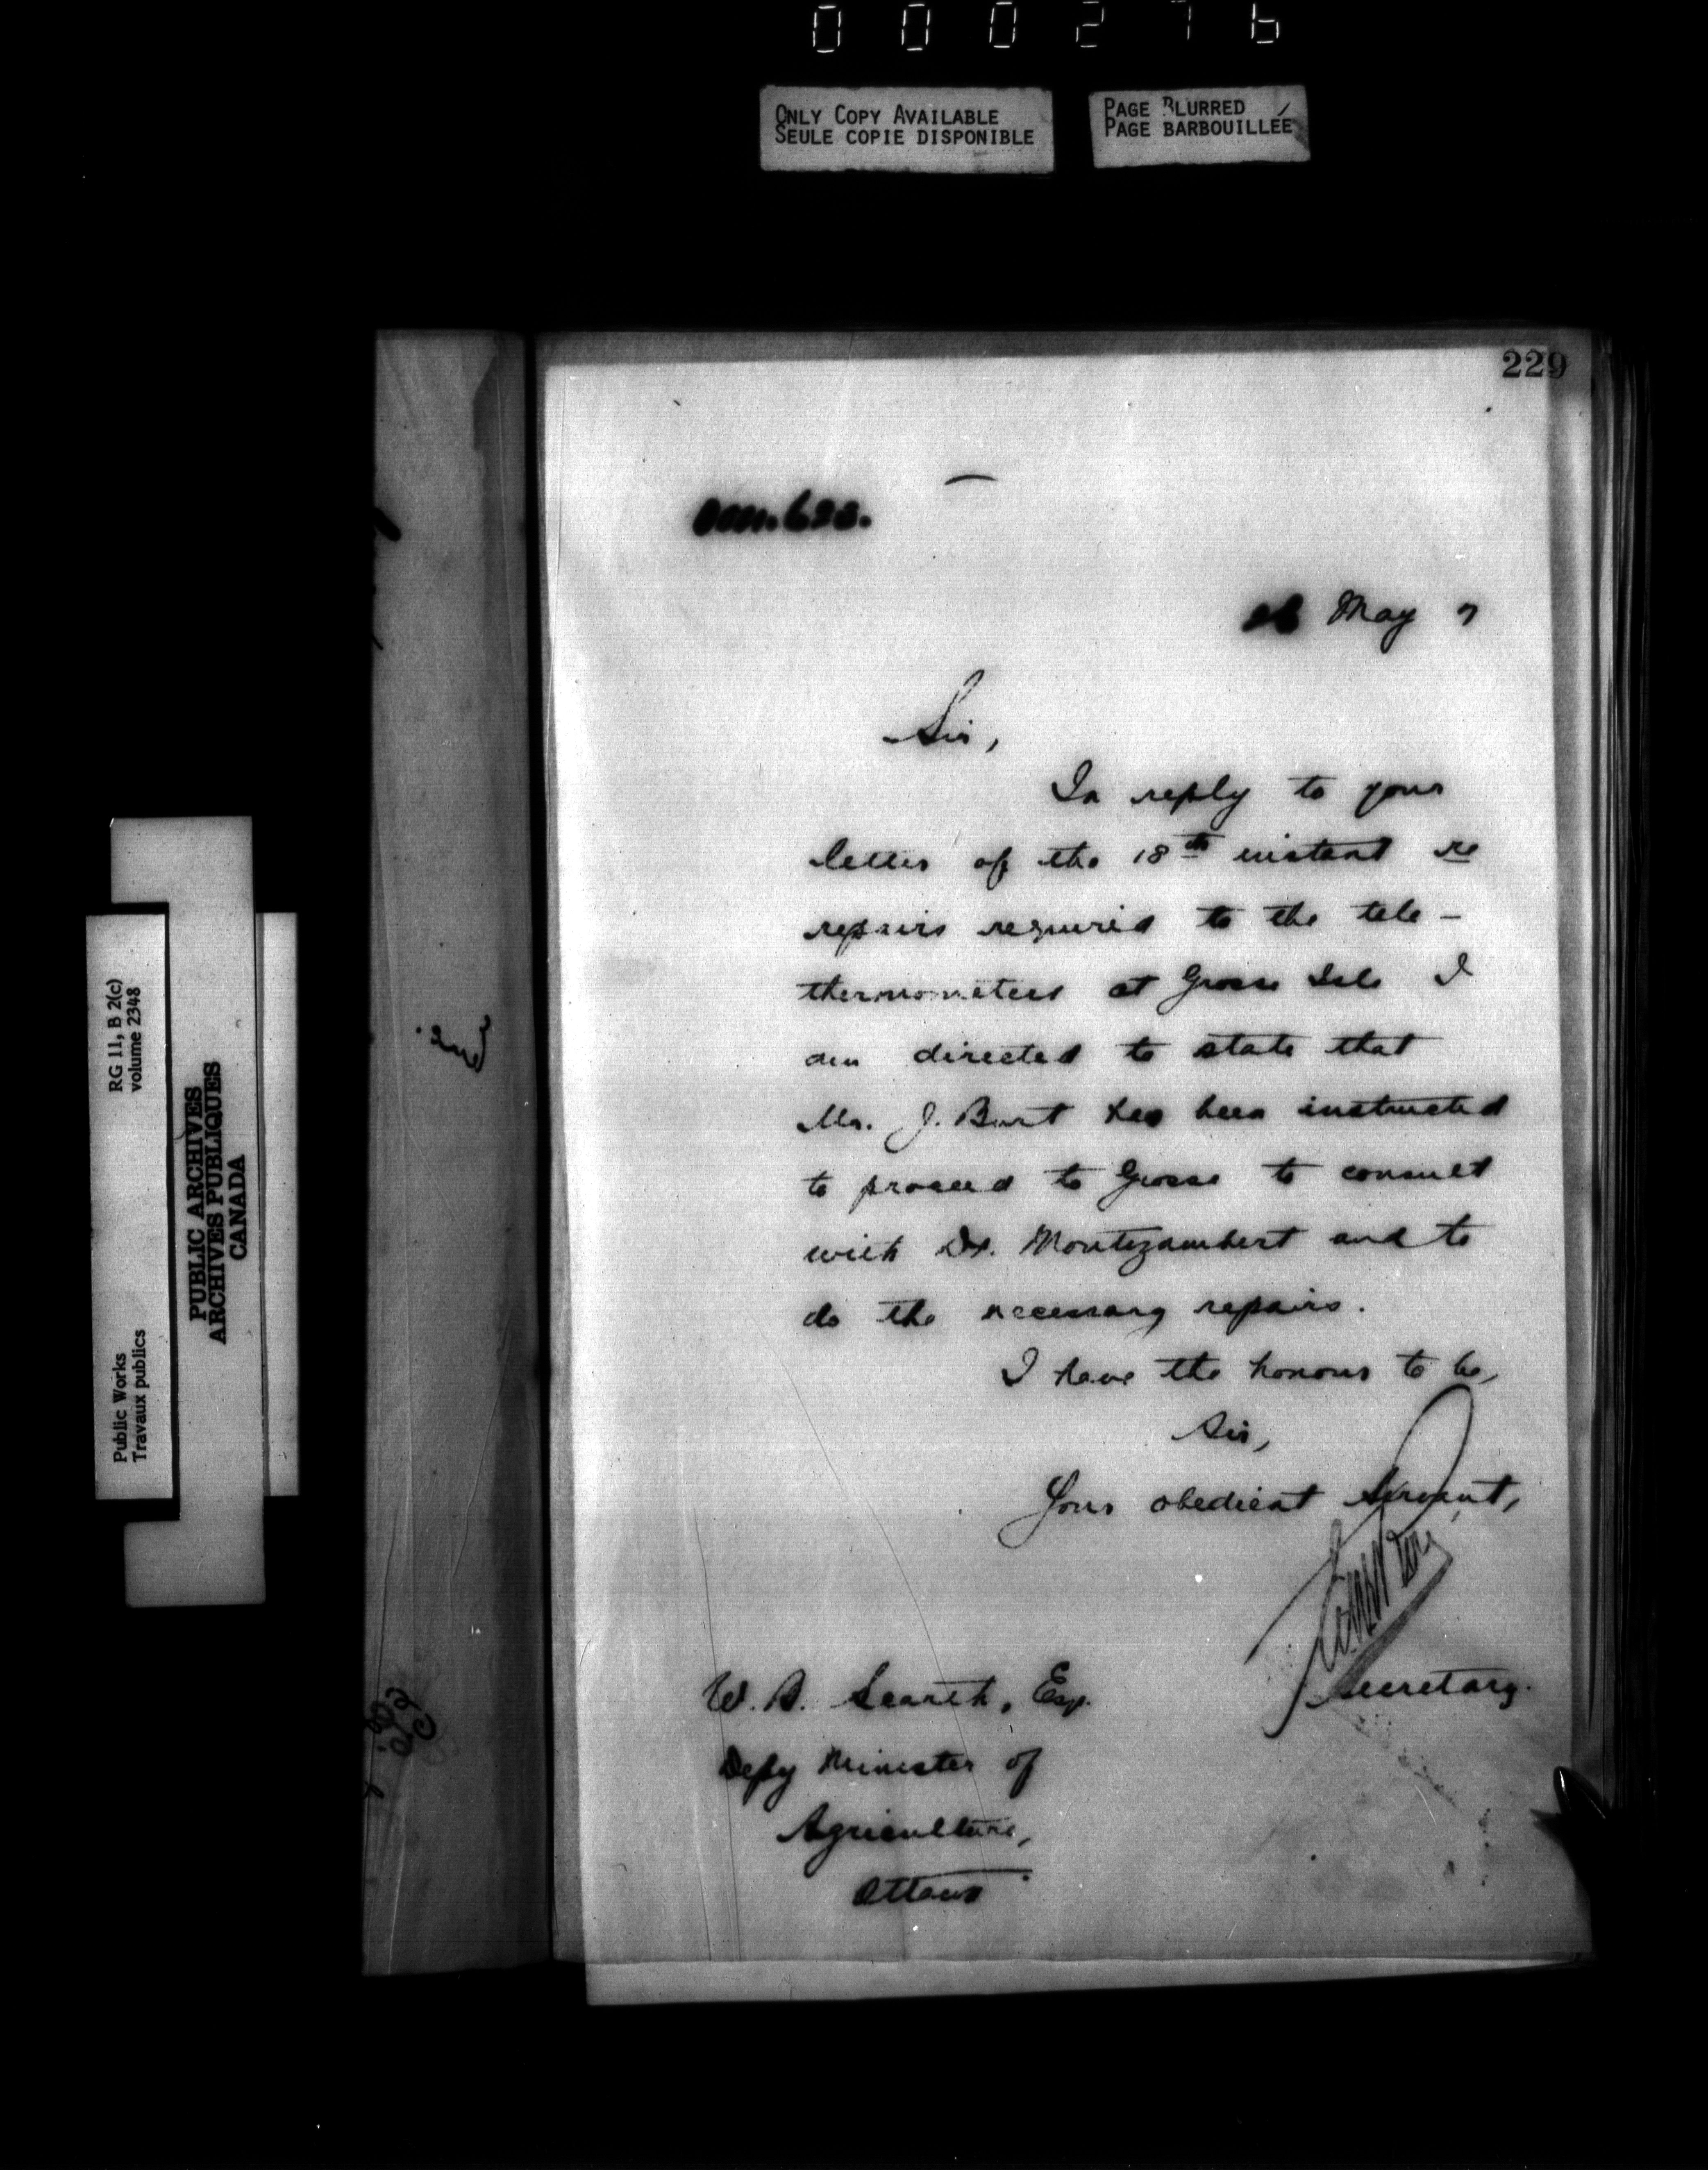 000276
ONLY COPY AVAILABLE
SEULE COPIE DISPONIBLE
PAGE BLURRED
PAGE BARBOUILLÉE
229
May 7
Sir,
In reply to your
letter of the 18th instant re
repairs required to the tele-
thermometers at Grosse Isle I
am directed to state that
Mr. J. Burt has been instructed
to proceed to Grosse to consult
with Dr. Montizambert and to
do the necessary repairs.
I have the honour to be,
Sir,
Your obedient Servant,
Secretary.
W. B. Scarth, Esq.
Depy Minister of
Agriculture,
Ottawa
RG 11, B 2(c)
volume 2348
Public Works
Travaux publics
PUBLIC ARCHIVES
ARCHIVES PUBLIQUES
CANADA